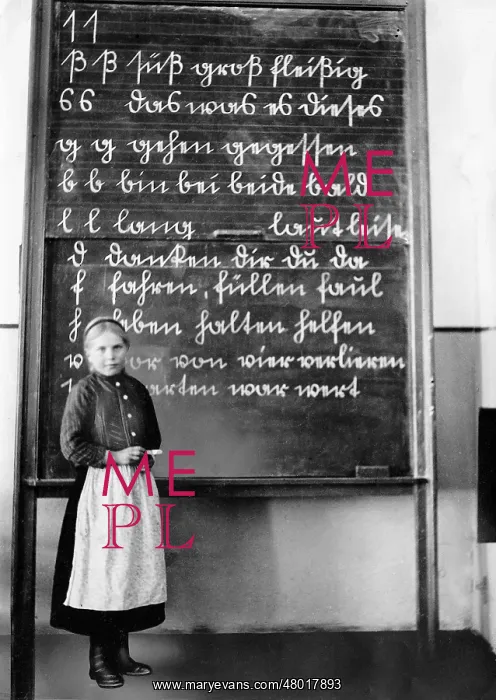 ſ ſ
ß ß süß groß fleißig
s s das was es dieses
g g gehen gegessen
b b bin bei beide bald
l l lang laut leise
d danken dir du da
f fahren, füllen faul
h halten helfen
v vor von vier verlieren
warten war wert
ME
PL
ME
PL
www.maryevans.com/48017893